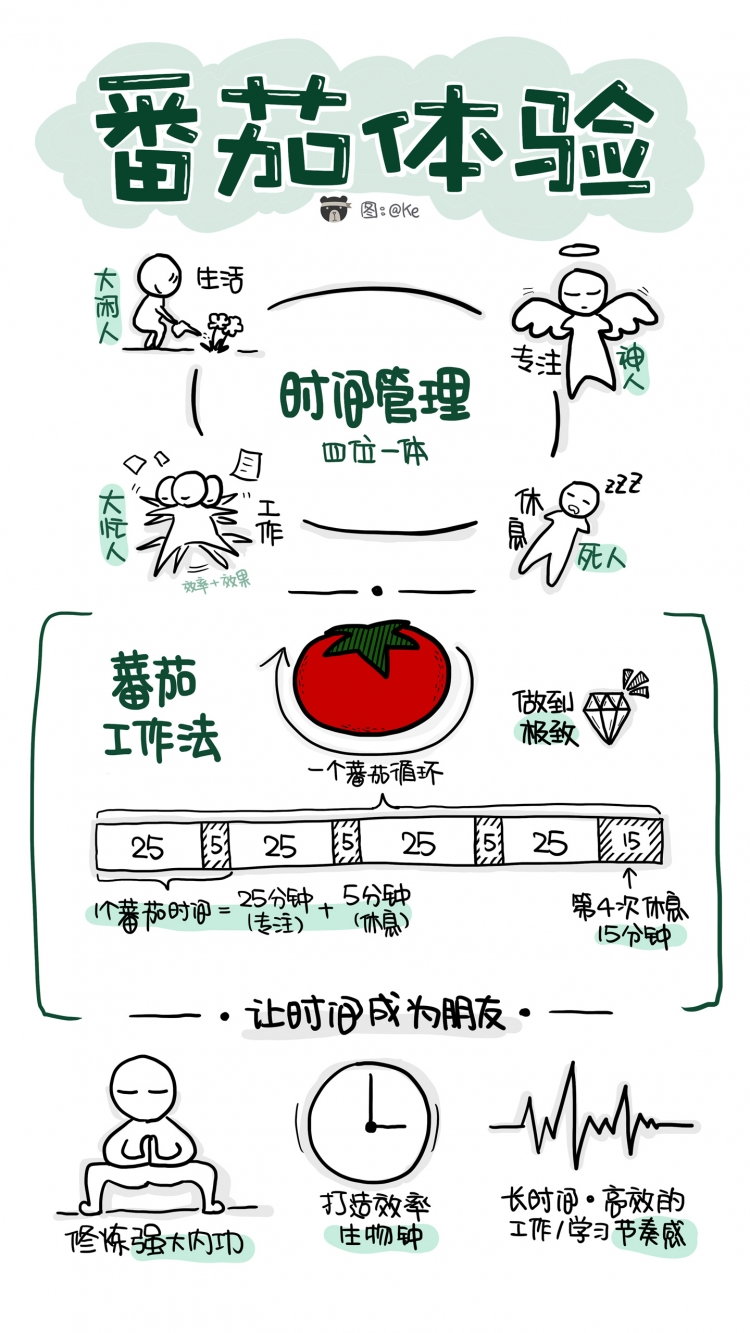 番茄体验
图:@Ke
大闲人
生活
专注
神人
时间管理
四位一体
大忙人
工作
效率+效果
休息
zzZ
死人
蕃茄
工作法
做到
极致
一个蕃茄循环
25 5 25 5 25 5 25 15
1个蕃茄时间 = 25分钟 + 5分钟
(专注) (休息)
第4次休息
15分钟
·让时间成为朋友·
修炼强大内功
打造效率
生物钟
长时间·高效的
工作/学习节奏感